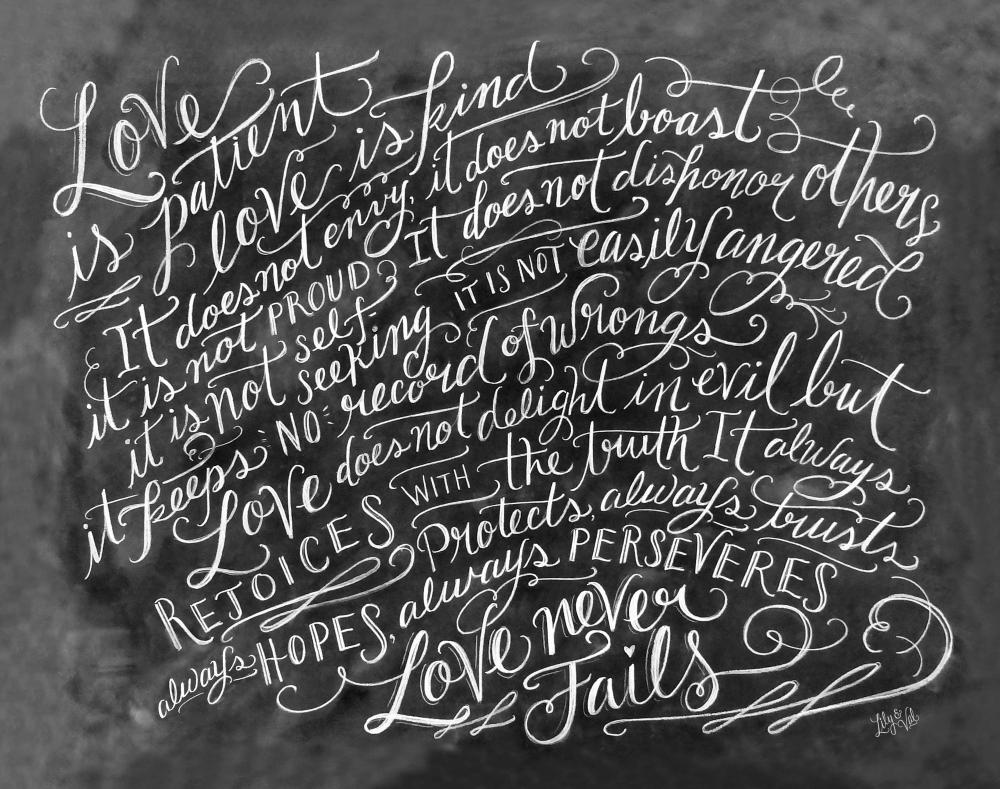 Love is patient
love is kind
It does not envy, it does not boast
it is not PROUD It does not dishonor others
it is not self-seeking IT IS NOT easily angered
it keeps NO record of wrongs
Love does not delight in evil but
REJOICES WITH the truth It always
Protects, always trusts
always HOPES, always PERSEVERES
Love never
Fails
Lily & Val